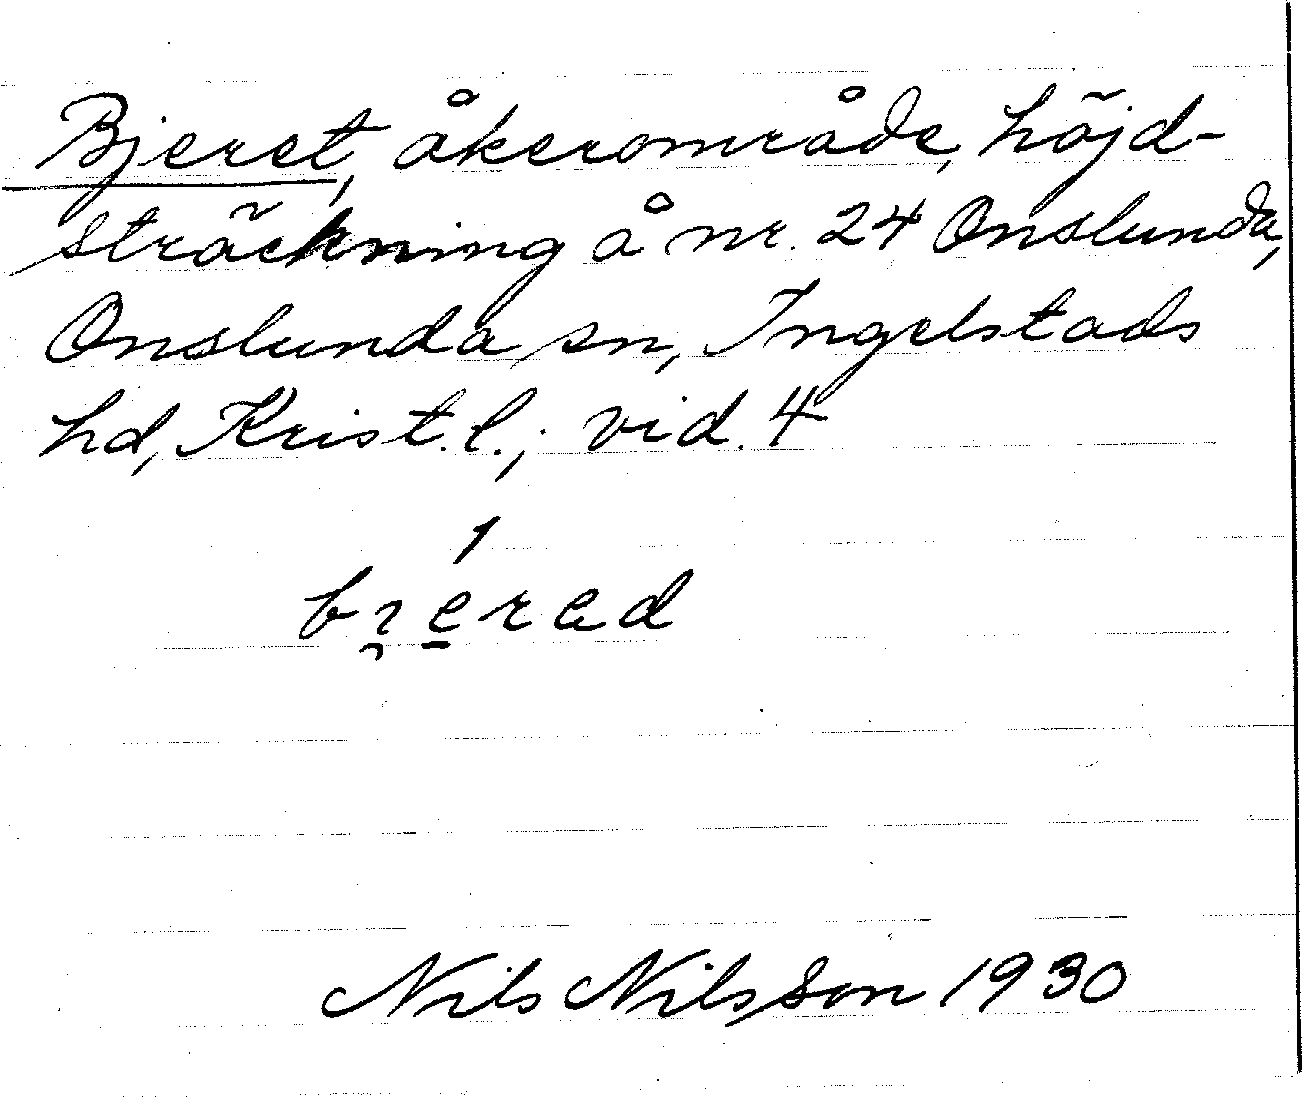 Bjeret, åkerområde, höjd-
sträckning å nr. 24 Onslunda,
Onslunda sn, Ingelstads
hd, Krist. l.; vid. 4
1
Nils Nilsson 1930